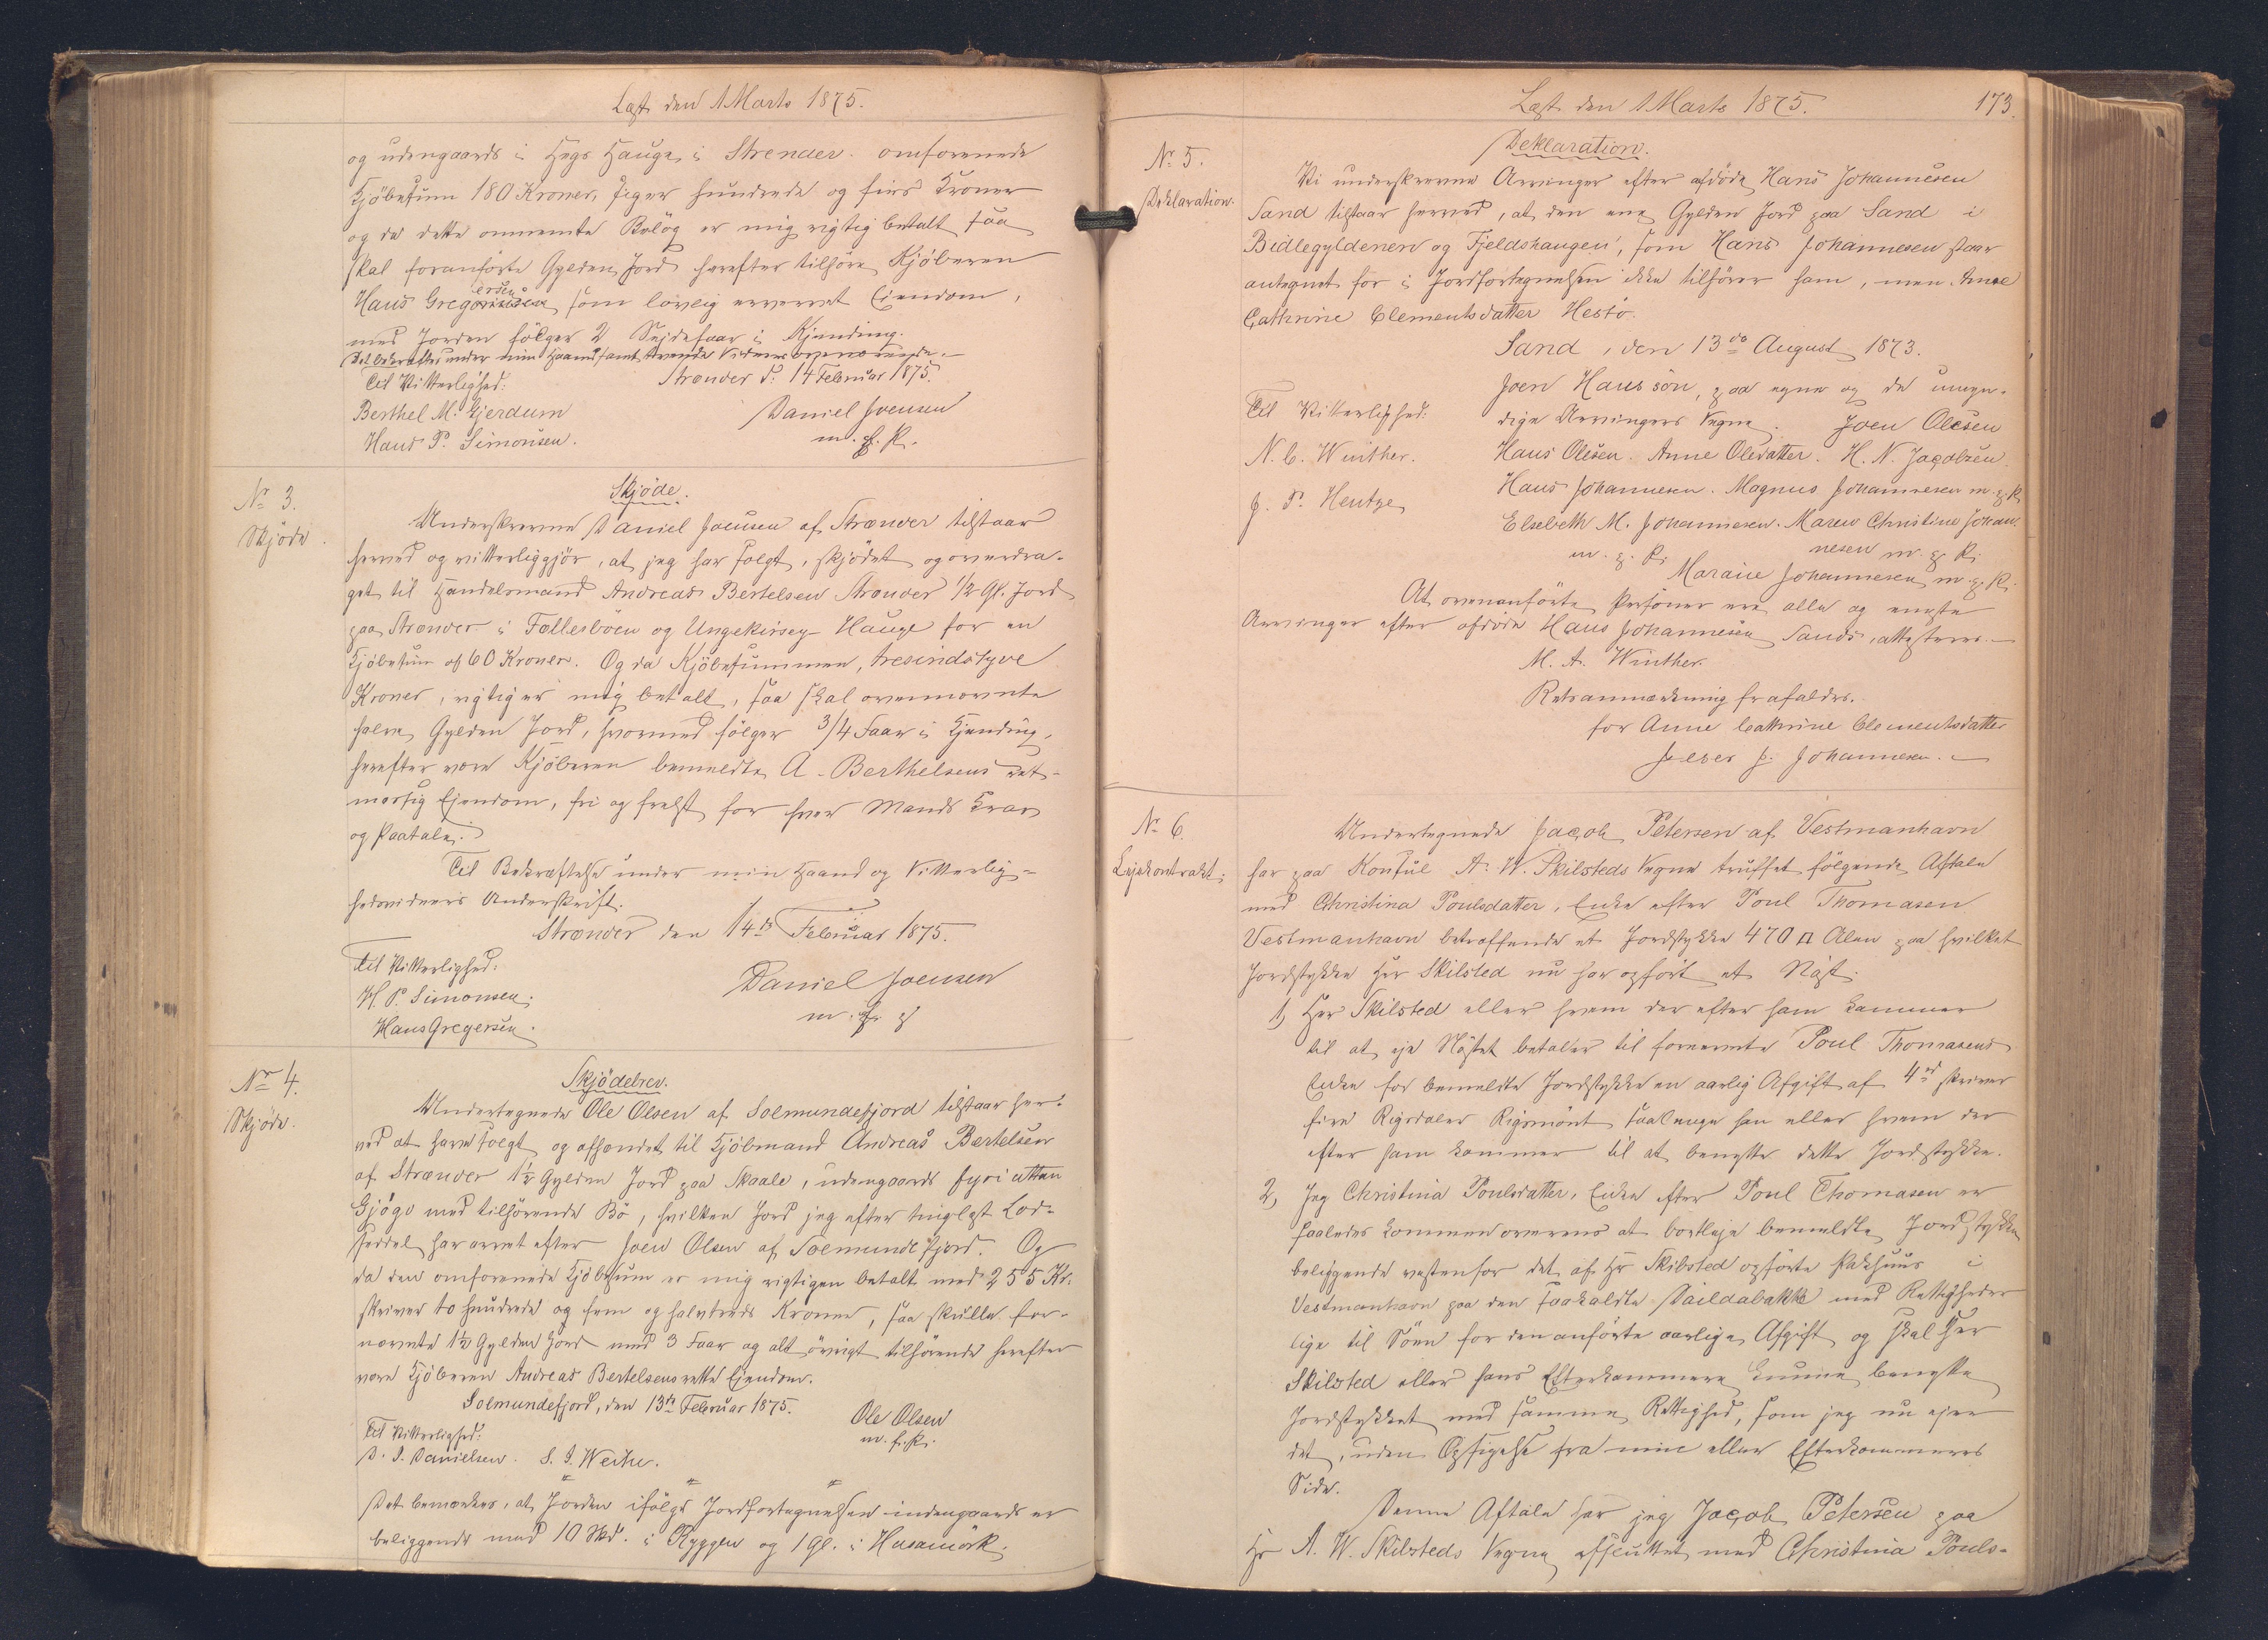 Læst den 1 Marts 1875.
og udengaards i Høgs Hauge i Strender omforenede
Kjøbesum 180 Kroner, siger hundrede og firs Kroner
og da dette ommeldte Beløb er mig rigtig betalt saa
skal foranførte Gylden Jord herefter tilhøre Kjøberen
Hans Gregersen som lovlig erhvervet Eiendom,
med Jorden følger 2 Sejdefaar i Kjending.
Det bekræftes under min Haand samt tvende Vidners overværelse.
Til Vitterlighed: Strender d. 14 Februar 1875.
Berthel M. Ejerdum Daniel Joensen
Hans P. Simonsen. m. f. P.
No 3.
Skjøde.
Skjøde.
Underskrevne Daniel Joensen af Strænder tilstaar
herved og vitterliggjør, at jeg har solgt, skjødet og overdra-
get til Handelsmand Andreas Bertelsen Strænder 1/2 Gl. Jord
paa Strænder i Fællesbøen og Ungekirsey Hauge for en
Kjøbesum af 60 Kroner. Og da Kjøbesummen, tresindstyve
Kroner, rigtig er mig betalt, saa skal ovennævnte
halve Gylden Jord, hvormed følger 3/4 Faar i Kjending,
herefter være Kjøberen bemeldte A. Berthelsens ret-
mæssig Ejendom, fri og frelst for hver Mands Krav
og Paatale.
Til Bekræftelse under min Haand og Vitterlig-
hedsvidners Underskrift.
Strænder den 14de Februar 1875.
Til Vitterlighed:
H. P. Simonsen. Daniel Joensen
Hans Gregersen. m. f. P
No 4.
Skjøde.
Skjødebrev.
Undertegnede Ole Olsen af Solmundefjord tilstaar her-
ved at have solgt og afhændet til Kjøbmand Andreas Bertelsen
af Strænder 1½ Gylden Jord paa Skaale, udengaards fyri uttan
Gjógv med tilhørende Bø, hvilken Jord jeg efter tinglæst Lod-
seddel har arvet efter Joen Olsen af Solmundefjord. Og
da den omforenede Kjøbesum er mig rigtigen betalt med 255 Kr.
skriver to hundrede og fem og halvtreds Kroner, saa skulle for-
nævnte 1½ Gylden Jord med 3 Faar og alt øvrigt tilhørende herefter
være Kjøberen Andreas Bertelsens rette Ejendom.
Solmundefjord, den 13de Februar 1875.
Til Vitterlighed: Ole Olsen
D. J. Danielsen. S. J. Weihe. m. f. P.
Det bemærkes, at Jorden ifølge Jordfortegnelsen indengaards er
beliggende med 10 Skd. i Ryggen og 1 Gl. i Husamørk.
Læst den 1 Marts 1875. 173.
No 5.
Deklaration.
Deklaration.
Vi underskrevne Arvinger efter afdøde Hans Johannesen
Sand tilstaar herved, at den ene Gylden Jord paa Sand i
Bidlegyldenen og Fjeldshaugen, som Hans Johannesen staar
antegnet for i Jordfortegnelsen ikke tilhører ham, men Anne
Cathrine Clementsdatter Hestø.
Sand, den 13de August 1873.
Joen Hanssøn, paa egne og de umyn-
Til Vitterlighed: dige Arvingers Vegne. Joen Olesen
N. C. Winther. Hans Olesen. Anne Olesdatter. H. N. Jacobsen.
J. P. Hentze Hans Johannesen. Magnus Johannesen m. f. P.
Elsebeth M. Johannesen. Maren Christine Johan-
m. f. P. nesen m. f. P.
Maraice Johannesen m. f. P.
At ovenanførte Personer ere alle og eneste
Arvinger efter afdøde Hans Johannesen Sand, attesteres.
M. A. Winther.
Retsanmærkning frafaldes.
for Anne Cathrine Clementsdatter
Peder J. Johannesen.
No 6.
Lejekontrakt.
Undertegnede Jacob Petersen af Vestmanhavn
har paa Konsul A. W. Skilsteds Vegne truffet følgende Aftale
med Christina Poulsdatter, Enke efter Poul Thomasen
Vestmanhavn betræffende et Jordstykke 470 □ Alen paa hvilket
Jordstykke Hr Skilsted nu har opført et Nøst.
1, Hr Skilsted eller hvem der efter ham kommer
til at eje Nøstet betaler til fornævnte Poul Thomasens
Enke for bemeldte Jordstykke en aarlig Afgift af 4rd skriver
fire Rigsdaler Rigsmønt saalænge han eller hvem der
efter ham kommer til at benytte dette Jordstykke.
2, Jeg Christina Poulsdatter, Enke efter Poul Thomasen er
saaledes kommen overens at bortleje bemeldte Jordstykke
beliggende vestenfor det af Hr Skilsted opførte Pakhuus i
Vestmanhavn paa den saakaldte Daildabakke med Rettigheder
lige til Søen for den anførte aarlige Afgift og skal Hr
Skilsted eller hans Efterkommere kunne benytte
Jordstykket med samme Rettighed, som jeg nu ejer
det, uden Opsigelse fra mine eller Efterkommeres
Side.
Denne Aftale har jeg Jacob Petersen paa
Hr A. W. Skilsteds Vegne afsluttet med Christina Pouls-